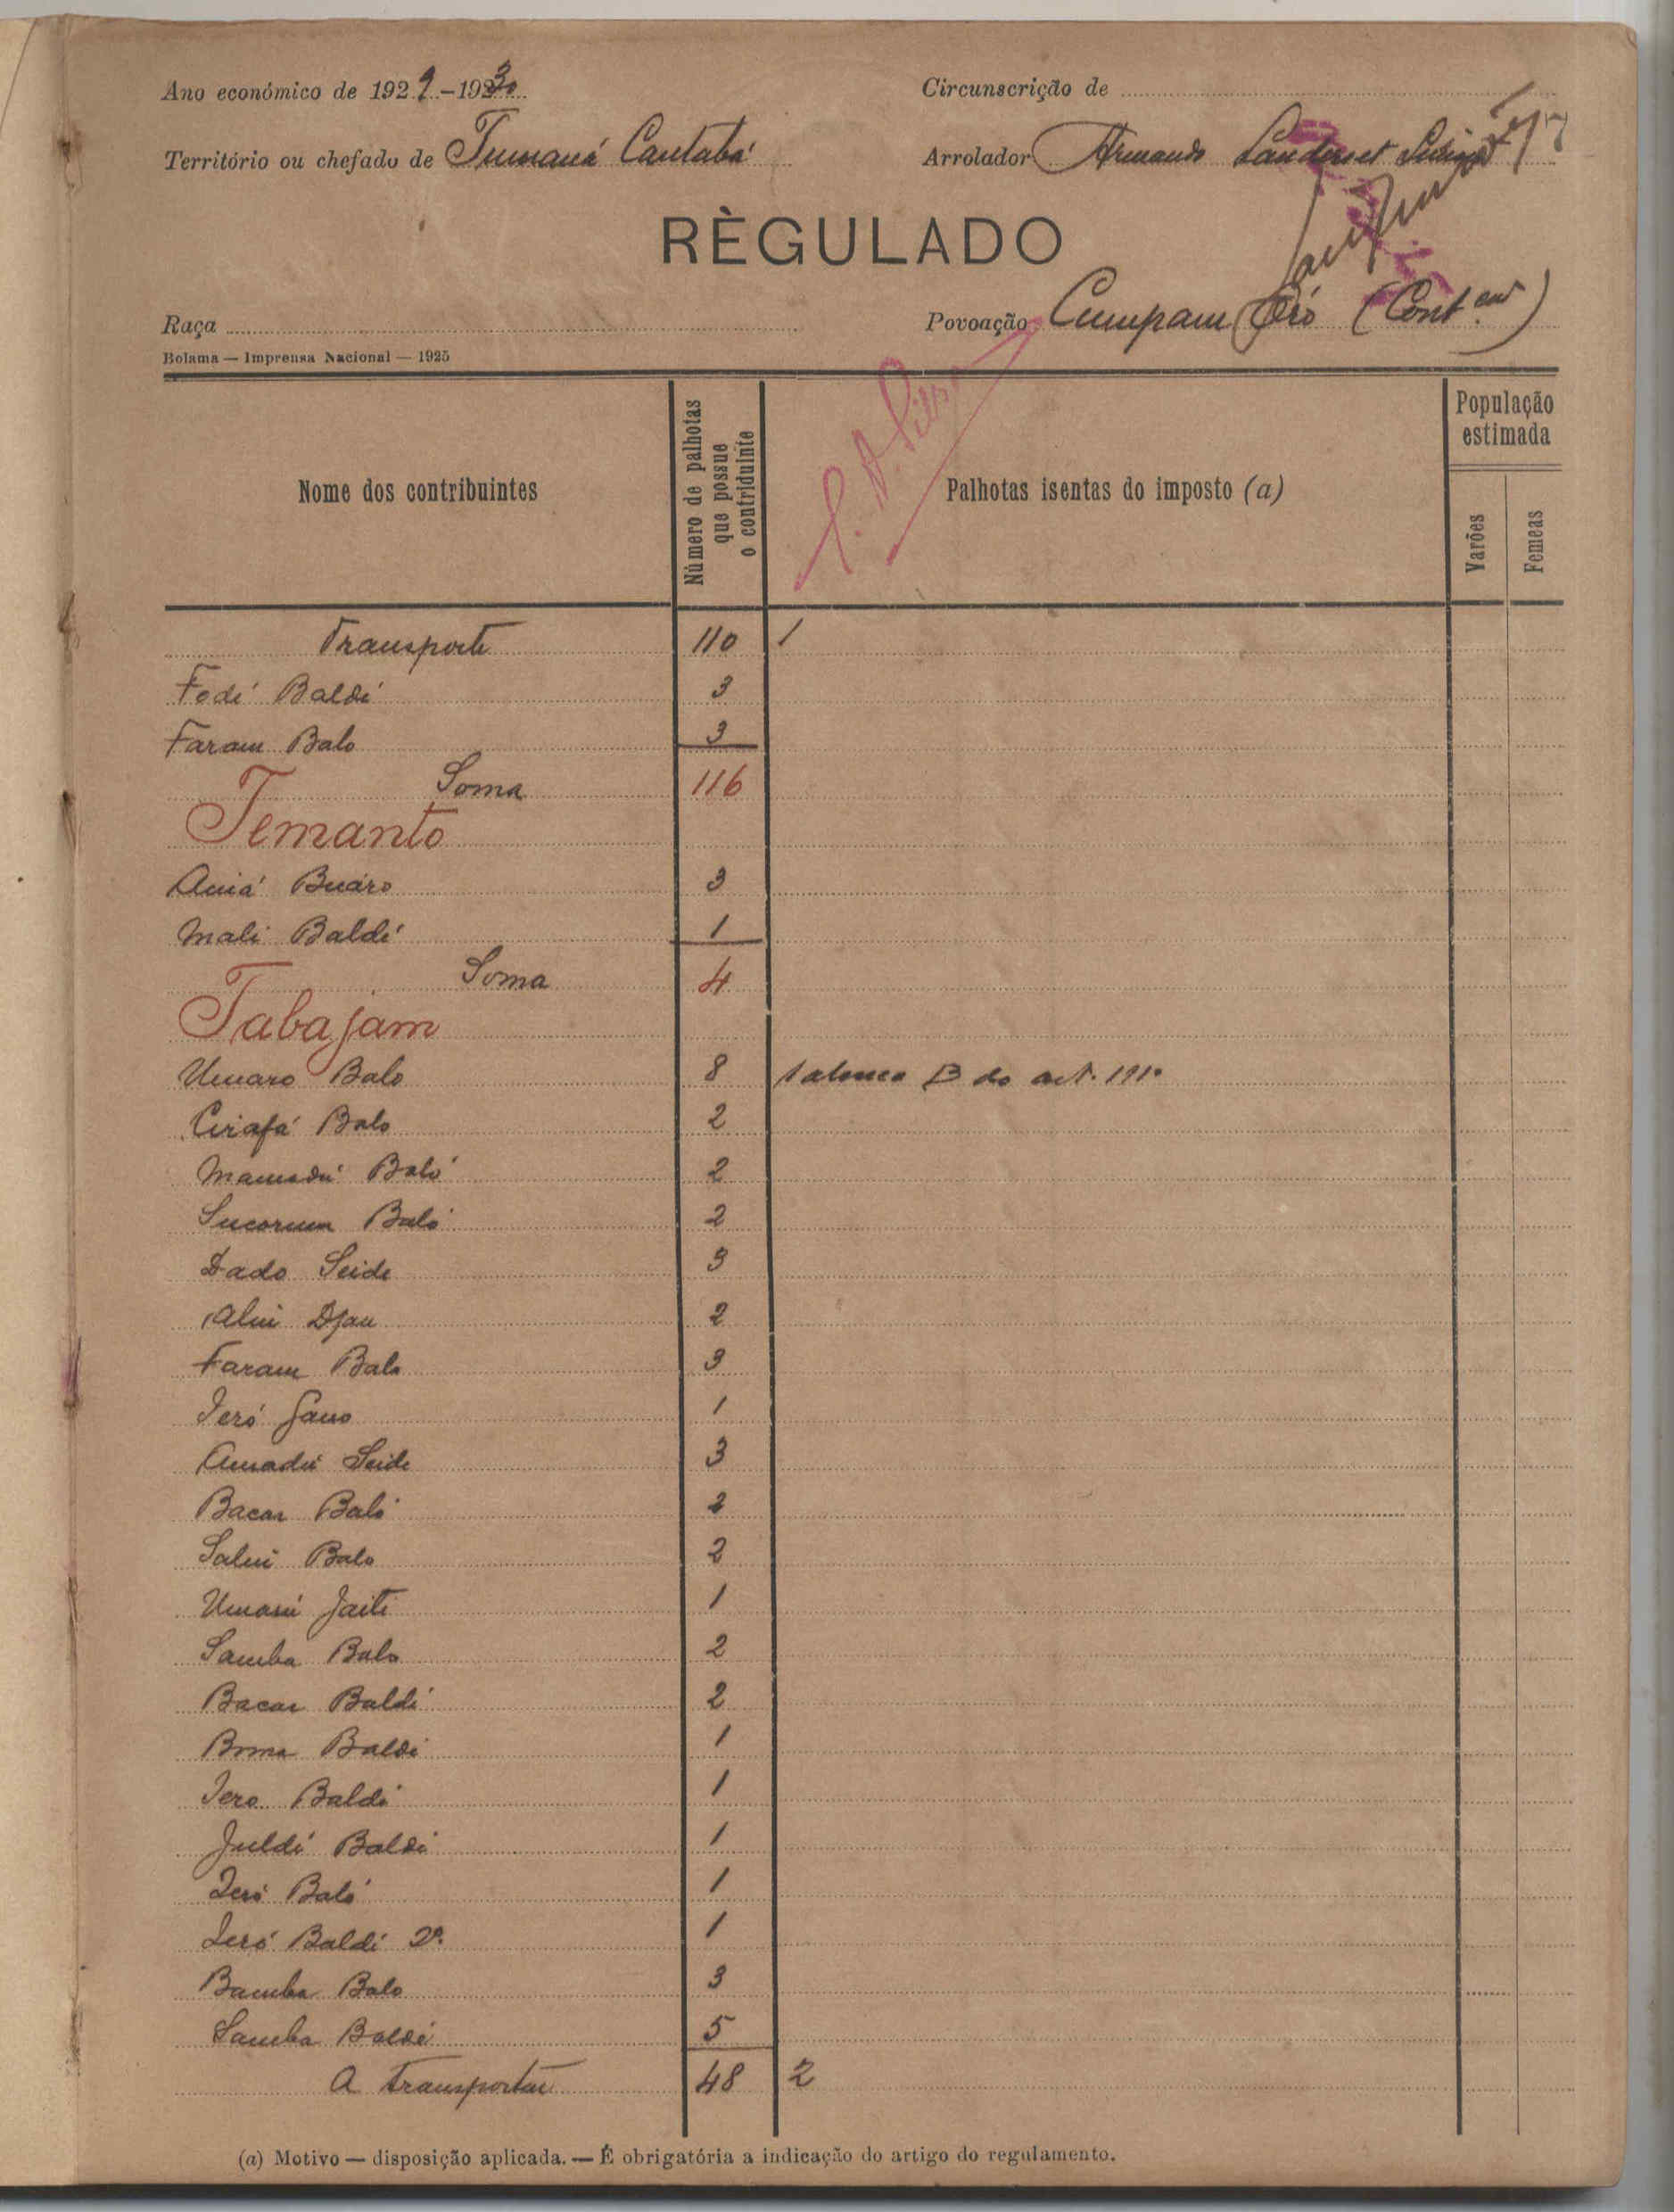 Ano económico de 1929-1930
Circunscrição de
Território ou chefado de Tumaná Cantabá
Arrolador Armando Landerset
77
RÈGULADO
Raça
Povoação Cumpam Oró (Cont.)
Bolama — Imprensa Nacional — 1925
Nome dos contribuintes
Número de palhotas
que possue
o contriduinte
Palhotas isentas do imposto (a)
População
estimada
Varões
Femeas
Transporte 110 1
Fodé Baldé 3
Faram Balo 3
Soma 116
Temanto
Buáro 3
Mali Baldé 1
Soma 4
Tabajam
Umaro Balo 8 B do art.
Cirafá Balo 2
Mamadú Baló 2
Baló 2
Dado Seide 3
Djau 2
Faram Balo 3
Jeró 1
Amadú Seide 3
Bacar Baló 2
Balo 2
Jaité 1
Samba Balo 2
Bacar Baldé 2
Boma Baldé 1
Jero Baldé 1
Juldé Baldé 1
Jeró Baló 1
Jeró Baldé 2º 1
Bamba Balo 3
Samba Baldé 5
A transportar 48 2
(a) Motivo — disposição aplicada. — É obrigatória a indicação do artigo do regulamento.